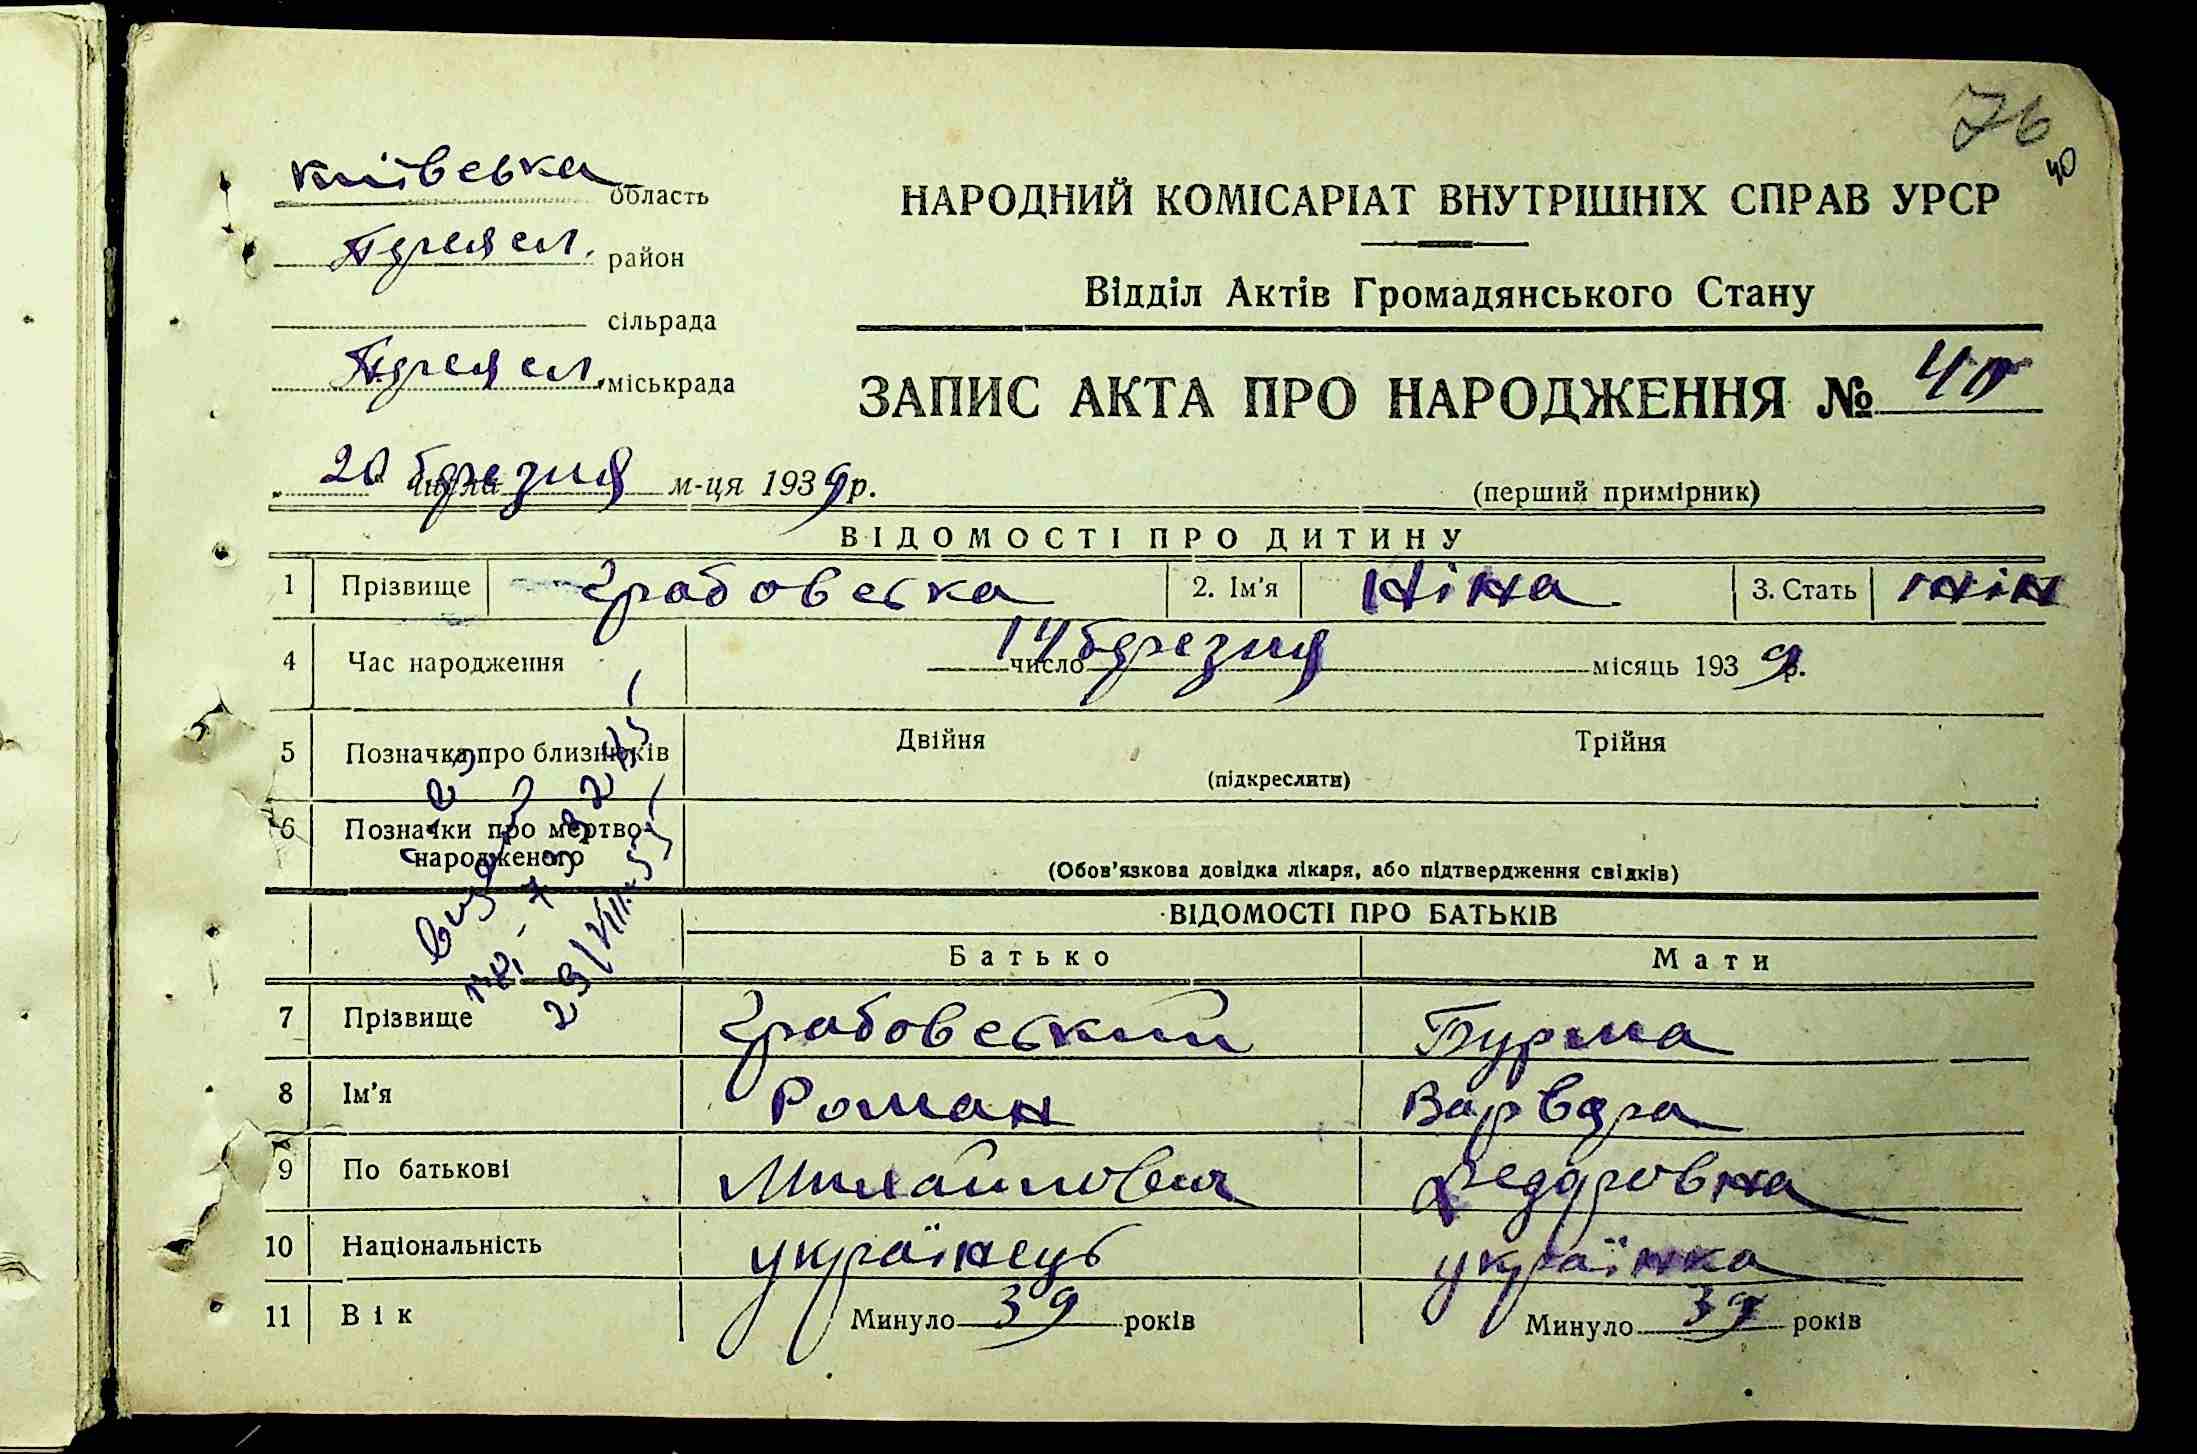 76
40
Київська область
Переясл. район
сільрада
Переясл. міськрада
НАРОДНИЙ КОМІСАРІАТ ВНУТРІШНІХ СПРАВ УРСР
Відділ Актів Громадянського Стану
ЗАПИС АКТА ПРО НАРОДЖЕННЯ № 40
20 числа березня м-ця 1939 р.
(перший примірник)
ВІДОМОСТІ ПРО ДИТИНУ
1 Прізвище Грабовська 2. Ім'я Ніна 3. Стать жін
4 Час народження 14 число березня місяць 1939 р.
5 Позначка про близнюків Двійня Трійня
(підкреслити)
6 Позначки про мертво-
народженого
(Обов'язкова довідка лікаря, або підтвердження свідків)
29/VIII-55
ВІДОМОСТІ ПРО БАТЬКІВ
Батько Мати
7 Прізвище Грабовський Бурма
8 Ім'я Роман Варвара
9 По батькові Михайлович Федоровна
10 Національність українець українка
11 Вік Минуло 39 років Минуло років